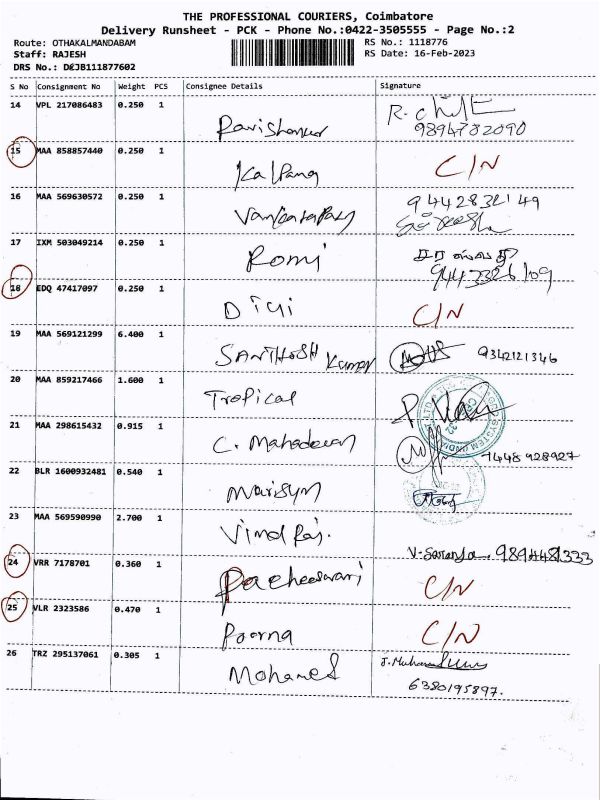 THE PROFESSIONAL COURIERS, Coimbatore
Delivery Runsheet - PCK - Phone No.:0422-3505555 - Page No.:2
Route: OTHAKALMANDABAM
RS No.: 1118776
Staff: RAJESH
RS Date: 16-Feb-2023
DRS No.: DEJB111877602
S No Consignment No Weight PCS Consignee Details Signature
14 VPL 217086483 0.250 1
Ravishankar
9894782090
15 MAA 858857440 0.250 1
Kalpana C/N
16 MAA 569630572 0.250 1
9442832149
17 IXM 503049214 0.250 1
Romi
9443326109
18 EDQ 47417097 0.250 1
C/N
19 MAA 569121299 6.400 1
SANTHOSH Kumar 9342121346
20 MAA 859217466 1.600 1
Tropical
21 MAA 298615432 0.915 1
C. Mahadevan 7448928927
22 BLR 1600932481 0.540 1
23 MAA 569590990 2.700 1
Vinod Raj.
V. Saranya. 9894481333
24 VRR 7178701 0.360 1
C/N
25 VLR 2323586 0.470 1
Poorna C/N
26 TRZ 295137061 0.305 1
Mohamed
6380195897.